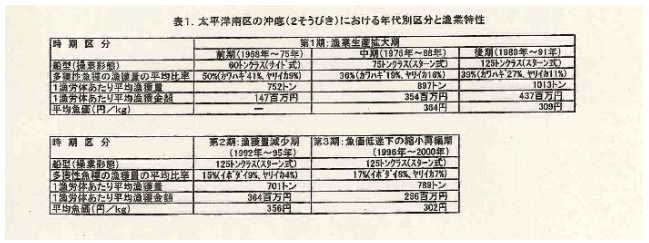 表1. 太平洋南区の沖底(2そうびき)における年代別区分と漁業特性
時期区分 第1期:漁業生産拡大期
前期(1968年〜75年) 中期(1976年〜88年) 後期(1989年〜91年)
船型(操業形態) 60トンクラス(サイド式) 75トンクラス(スターン式) 125トンクラス(スターン式)
多獲性魚種の漁獲量の平均比率 50%(カワハギ41%、ヤリイカ9%) 36%(カワハギ19%、ヤリイカ16%) 39%(カワハギ27%、ヤリイカ11%)
1漁労体あたり平均漁獲量 752トン 897トン 1013トン
1漁労体あたり平均漁獲金額 147百万円 354百万円 437百万円
平均魚価(円/kg) ― 364円 309円
時期区分 第2期:漁獲量減少期 第3期:魚価低迷下の縮小再編期
(1992年〜95年) (1996年〜2000年)
船型(操業形態) 125トンクラス(スターン式) 125トンクラス(スターン式)
多獲性魚種の漁獲量の平均比率 15%(イボダイ9%、ヤリイカ4%) 17%(イボダイ8%、ヤリイカ7%)
1漁労体あたり平均漁獲量 701トン 789トン
1漁労体あたり平均漁獲金額 364百万円 266百万円
平均魚価(円/kg) 356円 302円